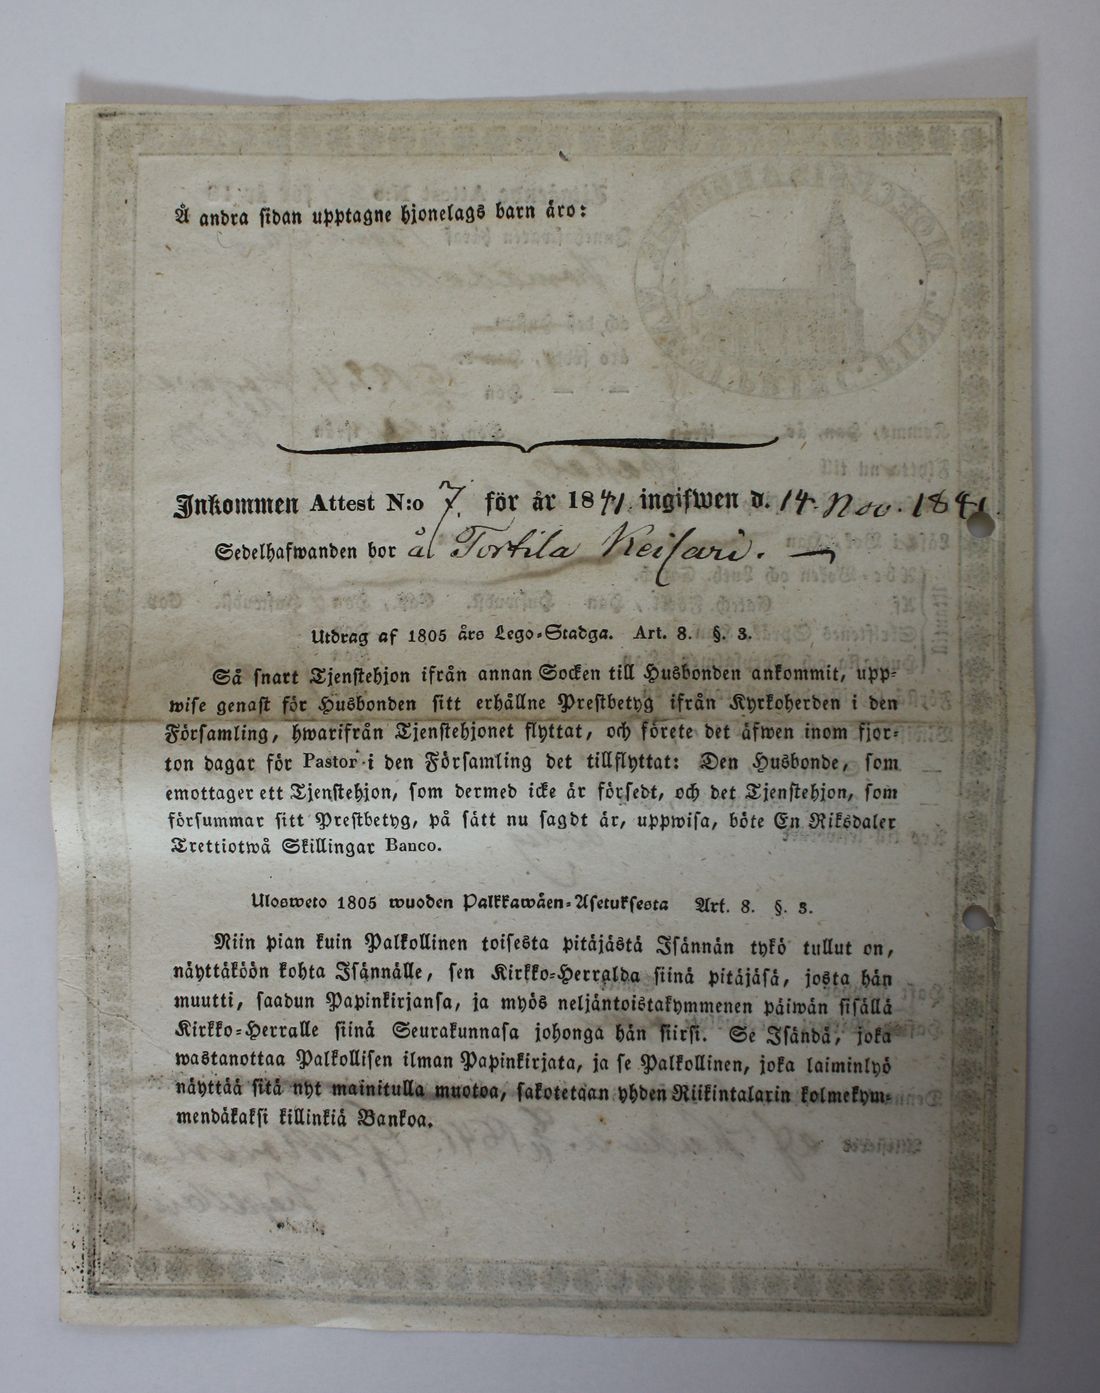 Å andra sidan upptagne hjonelags barn äro:
Inkommen Attest N:o 7. för år 1841. ingifwen d. 14. Nov. 1841.
Sedelhafwanden bor å Tortila Keisari. —
Utdrag af 1805 års Lego-Stadga. Art. 8. §. 3.
Så snart Tjenstehjon ifrån annan Socken till Husbonden ankommit, upp-
wise genast för Husbonden sitt erhållne Prestbetyg ifrån Kyrkoherden i den
Församling, hwarifrån Tjenstehjonet flyttat, och förete det äfwen inom fjor-
ton dagar för Pastor i den Församling det tillflyttat: Den Husbonde, som
emottager ett Tjenstehjon, som dermed icke är försedt, och det Tjenstehjon, som
försummar sitt Prestbetyg, på sätt nu sagdt är, uppwisa, böte En Riksdaler
Trettiotwå Skillingar Banco.
Ulosweto 1805 wuoden Palkkawäen-Asetuksesta Art. 8. §. 3.
Niin pian kuin Palkollinen toisesta pitäjästä Isännän tykö tullut on,
näyttäköön kohta Isännälle, sen Kirkko-Herralda siinä pitäjäsä, josta hän
muutti, saadun Papinkirjansa, ja myös neljäntoistakymmenen päiwän sisällä
Kirkko-Herralle siinä Seurakunnasa johonga hän siirsi. Se Isändä, joka
wastanottaa Palkollisen ilman Papinkirjata, ja se Palkollinen, joka laiminlyö
näyttää sitä nyt mainitulla muotoa, sakotetaan yhden Riikintalarin kolmekym-
mendäkaksi killinkiä Bankoa.